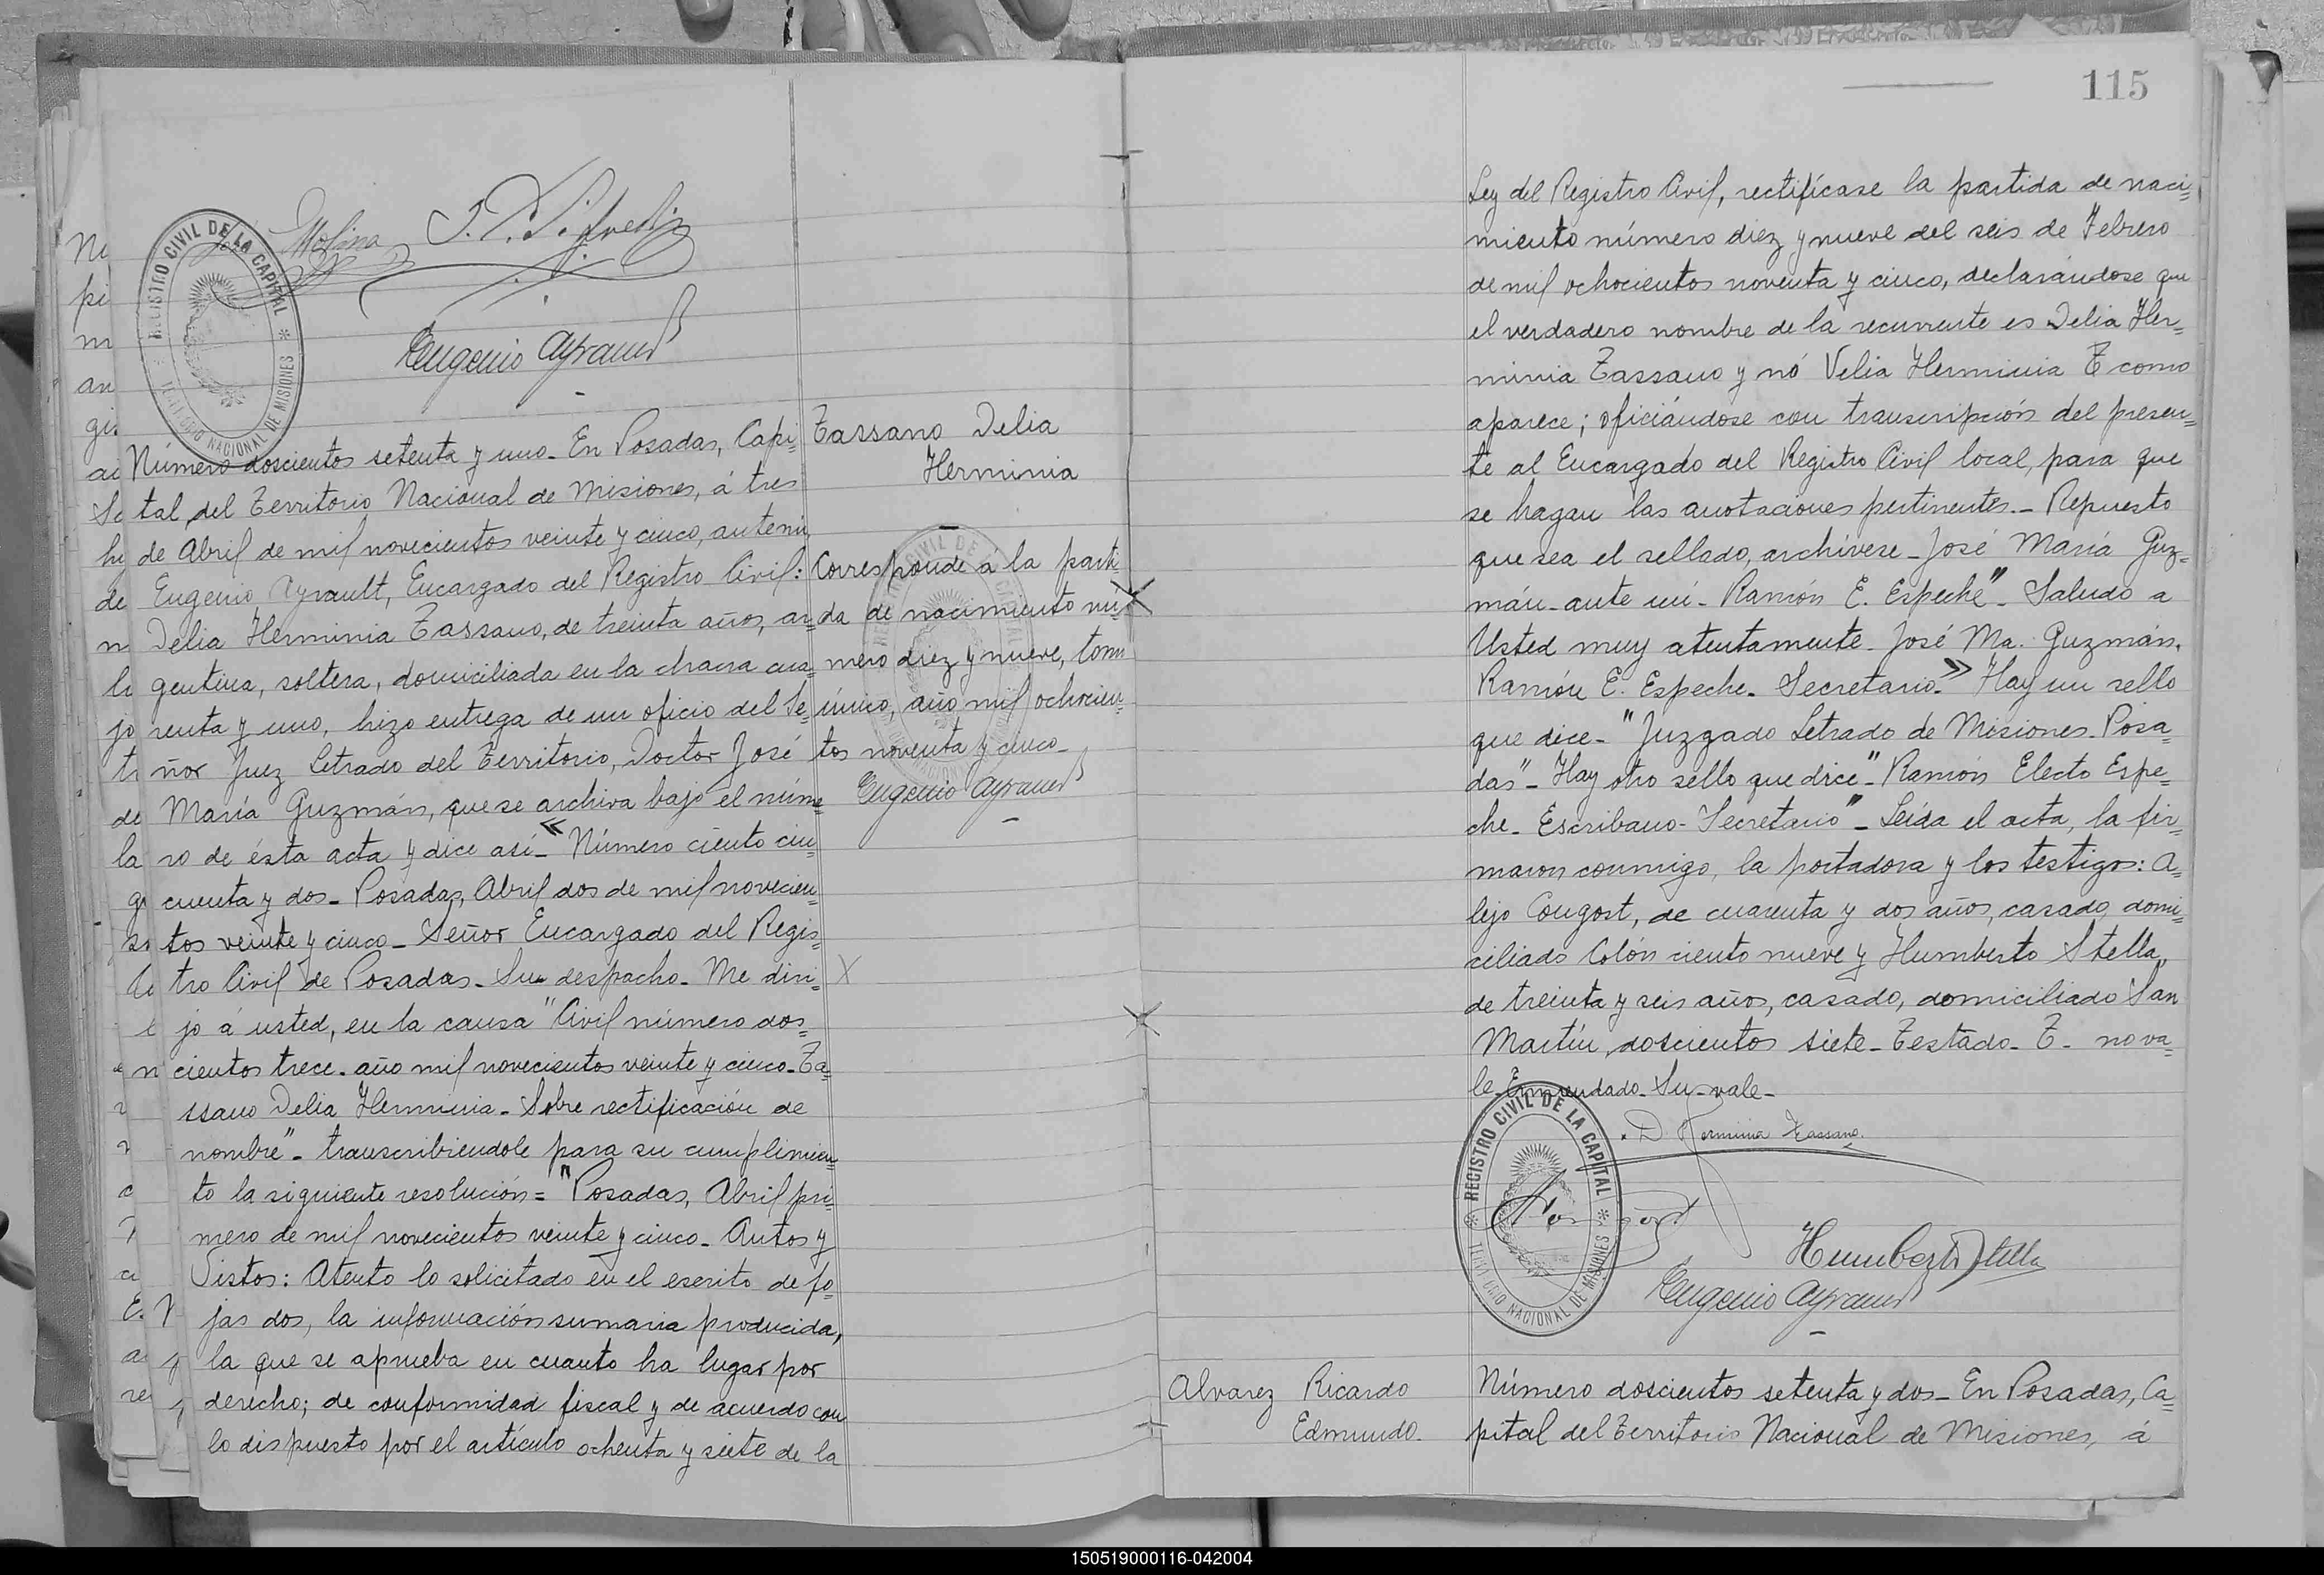 Molina
Eugenio Ayrault
REGISTRO CIVIL DE LA CAPITAL
TERRITORIO NACIONAL DE MISIONES
Número doscientos setenta y uno_ En Posadas, Capi=
tal del Territorio Nacional de Misiones, á tres
de Abril de mil novecientos veinte y cinco, ante mi,
Eugenio Ayrault, Encargado del Registro Civil:
Delia Herminia Tassano, de treinta años, ar=
gentina, soltera, domiciliada en la chacra cua=
renta y uno, hizo entrega de un oficio del Se=
ñor Juez Letrado del Territorio, Doctor José
María Guzmán, que se archiva bajo el núme
ro de ésta acta y dice así_ « Número ciento cin=
cuenta y dos_ Posadas, Abril dos de mil novecien=
tos veinte y cinco_ Señor Encargado del Regis=
tro Civil de Posadas_ Su despacho_ Me diri=
jo á usted, en la causa "Civil número dos=
cientos trece_ año mil novecientos veinte y cinco_ Ta=
ssano Delia Herminia_ Sobre rectificación de
nombre"_ transcribiendole para su cumplimien=
to la siguiente resolución= "Posadas, Abril pri=
mero de mil novecientos veinte y cinco_ Autos y
Vistos: Atento lo solicitado en el escrito de fo=
jas dos, la información sumaria producida,
la que se aprueba en cuanto ha lugar por
derecho; de conformidad fiscal y de acuerdo con
lo dispuesto por el artículo ochenta y siete de la
Tassano Delia
Herminia
Corresponde á la parti=
da de nacimiento nú=
mero diez y nueve, tomo
único, año mil ochocien=
tos noventa y cinco_
Eugenio Ayrault
115
Ley del Registro Civil, rectifícase la partida de naci=
miento número diez y nueve del seis de Febrero
de mil ochocientos noventa y cinco, declarándose que
el verdadero nombre de la recurrente es Delia Her=
minia Tassano y nó Velia Herminia T como
aparece; oficiándose con transcripción del presen=
te al Encargado del Registro Civil local, para que
se hagan las anotaciones pertinentes._ Repuesto
que sea el sellado, archívese_ José María Guz=
mán_ ante mi_ Ramón E. Espeche"_ Saludo a
Usted muy atentamente_ José Ma. Guzmán.
Ramón E. Espeche_ Secretario_» Hay un sello
que dice_ "Juzgado Letrado de Misiones_ Posa=
das"_ Hay otro sello que dice_" Ramón Electo Espe=
che_ Escribano- Secretario"_ Leída el acta, la fir=
maron conmigo, la portadora y los testigos: A=
lejo Congost, de cuarenta y dos años, casado, domi=
ciliado Colón ciento nueve y Humberto Stella,
de treinta y seis años, casado, domiciliado San
Martín, doscientos siete_ Testado_ T_ no va=
le_ Enmendado_ Su_ vale_
D. Herminia Tassano
Humberto Stella
Eugenio Ayrault
REGISTRO CIVIL DE LA CAPITAL
TERRITORIO NACIONAL DE MISIONES
Alvarez Ricardo
Edmundo.
Número doscientos setenta y dos_ En Posadas, Ca=
pital del Territorio Nacional de Misiones, á
150519000116-042004